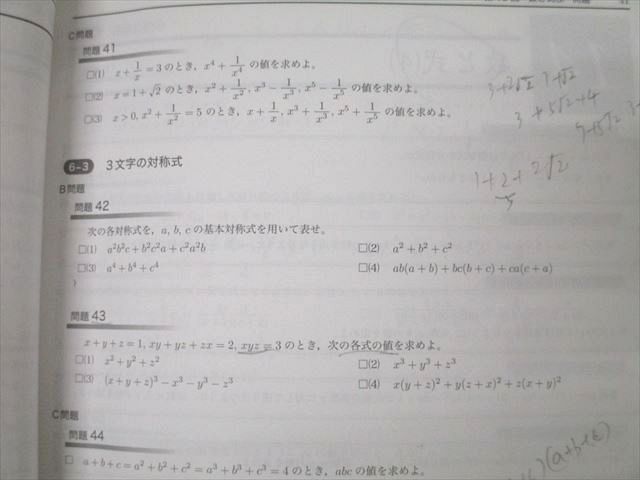 C問題
問題 41
□(1) x + 1/x = 3 のとき, x⁴ + 1/x⁴ の値を求めよ。
□(2) x = 1 + √2 のとき, x² + 1/x², x³ − 1/x³, x⁵ − 1/x⁵ の値を求めよ。
□(3) x > 0, x² + 1/x² = 5 のとき, x + 1/x, x³ + 1/x³, x⁵ + 1/x⁵ の値を求めよ。
3+2√2 1+√2
3 + 5√2 + 4
1+2+2√2
3
6-3 3文字の対称式
B問題
問題 42
次の各対称式を, a, b, c の基本対称式を用いて表せ。
□(1) a²b²c + b²c²a + c²a²b □(2) a² + b² + c²
□(3) a⁴ + b⁴ + c⁴ □(4) ab(a + b) + bc(b + c) + ca(c + a)
問題 43
x + y + z = 1, xy + yz + zx = 2, xyz = 3 のとき, 次の各式の値を求めよ。
□(1) x² + y² + z² □(2) x³ + y³ + z³
□(3) (x + y + z)³ − x³ − y³ − z³ □(4) x(y + z)² + y(z + x)² + z(x + y)²
C問題
問題 44
□ a + b + c = a² + b² + c² = a³ + b³ + c³ = 4 のとき, abc の値を求めよ。
(a+b+c)